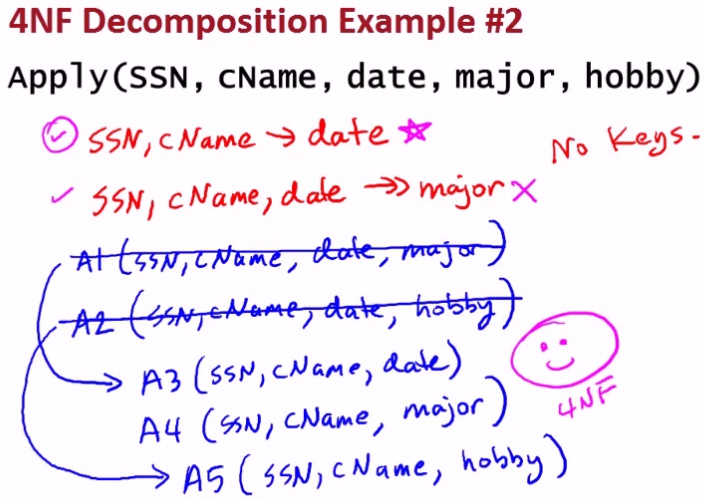 4NF Decomposition Example #2
Apply(SSN, cName, date, major, hobby)
SSN, cName → date
No Keys.
SSN, cName, date ↠ major
A1 (SSN, cName, date, major)
A2 (SSN, cName, date, hobby)
A3 (SSN, cName, date)
4NF
A4 (SSN, cName, major)
A5 (SSN, cName, hobby)